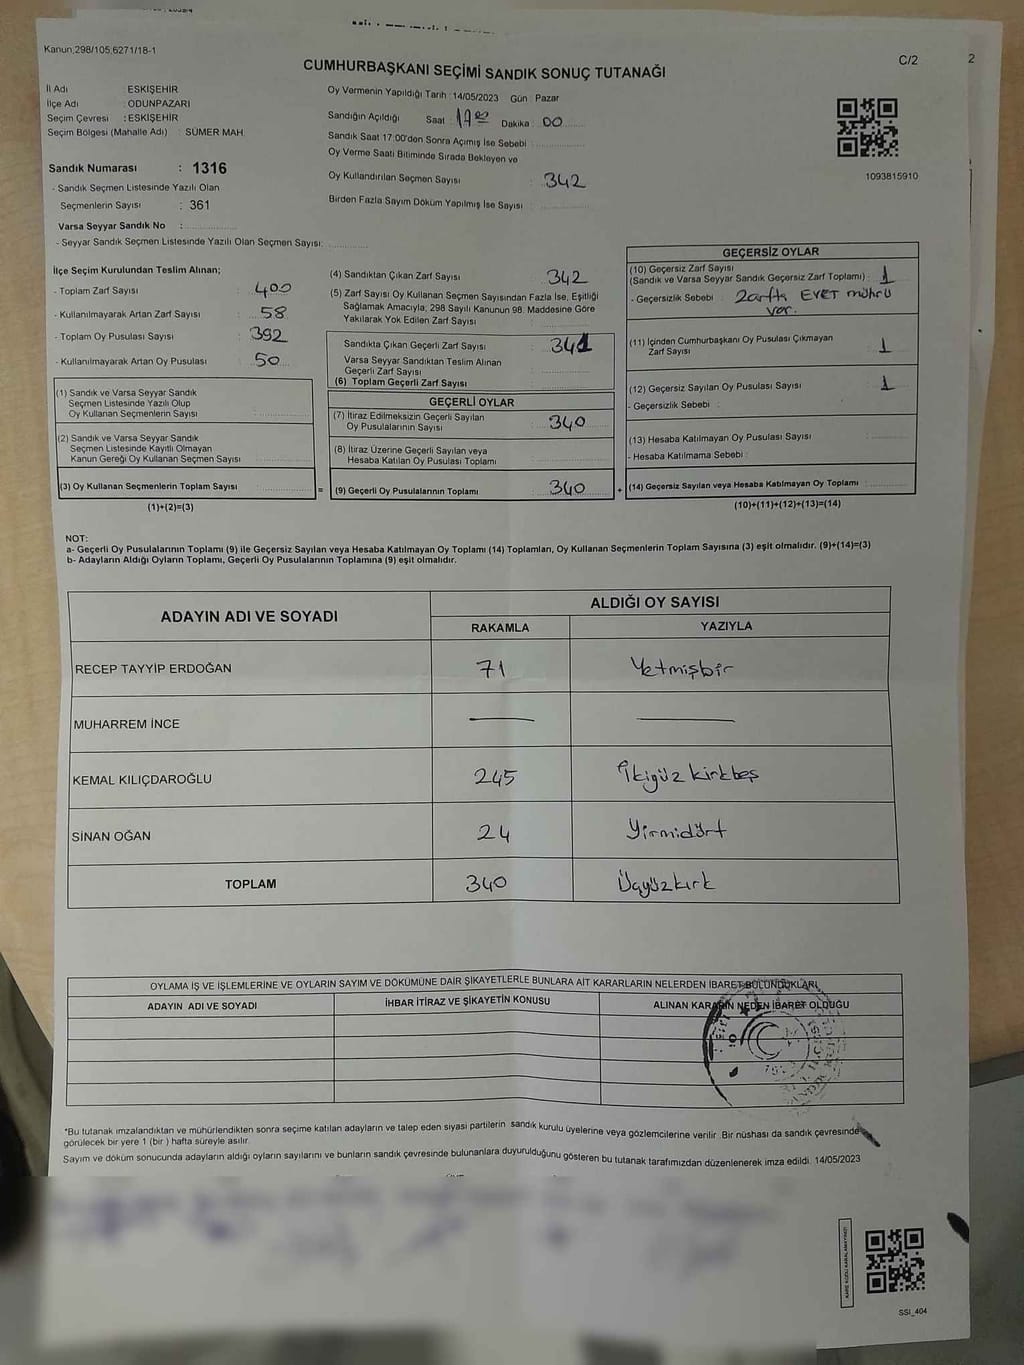 Kanun,298/105,6271/18-1
C/2
2
CUMHURBAŞKANI SEÇİMİ SANDIK SONUÇ TUTANAĞI
İl Adı ESKİŞEHİR
İlçe Adı : ODUNPAZARI
Seçim Çevresi : ESKİŞEHİR
Seçim Bölgesi (Mahalle Adı) : SÜMER MAH.
Sandık Numarası : 1316
- Sandık Seçmen Listesinde Yazılı Olan
Seçmenlerin Sayısı : 361
Varsa Seyyar Sandık No :
- Seyyar Sandık Seçmen Listesinde Yazılı Olan Seçmen Sayısı:
Oy Vermenin Yapıldığı Tarih :14/05/2023 Gün : Pazar
Sandığın Açıldığı Saat : Dakika : 00
Sandık Saat 17:00'den Sonra Açımış İse Sebebi :
Oy Verme Saati Bitiminde Sırada Bekleyen ve
Oy Kullandırılan Seçmen Sayısı : 342
Birden Fazla Sayım Döküm Yapılmış İse Sayısı :
1093815910
İlçe Seçim Kurulundan Teslim Alınan;
- Toplam Zarf Sayısı : 400
- Kullanılmayarak Artan Zarf Sayısı : 58
- Toplam Oy Pusulası Sayısı : 392
- Kullanılmayarak Artan Oy Pusulası : 50
(1) Sandık ve Varsa Seyyar Sandık
Seçmen Listesinde Yazılı Olup
Oy Kullanan Seçmenlerin Sayısı :
(2) Sandık ve Varsa Seyyar Sandık
Seçmen Listesinde Kayıtlı Olmayan
Kanun Gereği Oy Kullanan Seçmen Sayısı :
(3) Oy Kullanan Seçmenlerin Toplam Sayısı :
(1)+(2)=(3)
(4) Sandıktan Çıkan Zarf Sayısı : 342
(5) Zarf Sayısı Oy Kullanan Seçmen Sayısından Fazla İse, Eşitliği
Sağlamak Amacıyla, 298 Sayılı Kanunun 98. Maddesine Göre
Yakılarak Yok Edilen Zarf Sayısı :
Sandıkta Çıkan Geçerli Zarf Sayısı : 341
Varsa Seyyar Sandıktan Teslim Alınan
Geçerli Zarf Sayısı :
(6) Toplam Geçerli Zarf Sayısı :
GEÇERLİ OYLAR
(7) İtiraz Edilmeksizin Geçerli Sayılan
Oy Pusulalarının Sayısı : 340
(8) İtiraz Üzerine Geçerli Sayılan veya
Hesaba Katılan Oy Pusulası Toplamı :
= (9) Geçerli Oy Pusulalarının Toplamı : 340 +
GEÇERSİZ OYLAR
(10) Geçersiz Zarf Sayısı
(Sandık ve Varsa Seyyar Sandık Geçersiz Zarf Toplamı) : 1
- Geçersizlik Sebebi : Zarfta EVET mührü
var.
(11) İçinden Cumhurbaşkanı Oy Pusulası Çıkmayan
Zarf Sayısı : 1
(12) Geçersiz Sayılan Oy Pusulası Sayısı : 1
- Geçersizlik Sebebi :
(13) Hesaba Katılmayan Oy Pusulası Sayısı :
- Hesaba Katılmama Sebebi :
(14) Geçersiz Sayılan veya Hesaba Katılmayan Oy Toplamı :
(10)+(11)+(12)+(13)=(14)
NOT:
a- Geçerli Oy Pusulalarının Toplamı (9) ile Geçersiz Sayılan veya Hesaba Katılmayan Oy Toplamı (14) Toplamları, Oy Kullanan Seçmenlerin Toplam Sayısına (3) eşit olmalıdır. (9)+(14)=(3)
b- Adayların Aldığı Oyların Toplamı, Geçerli Oy Pusulalarının Toplamına (9) eşit olmalıdır.
ADAYIN ADI VE SOYADI ALDIĞI OY SAYISI
RAKAMLA YAZIYLA
RECEP TAYYİP ERDOĞAN 71 Yetmişbir
MUHARREM İNCE — —
KEMAL KILIÇDAROĞLU 245 İkiyüz kırkbeş
SİNAN OĞAN 24 Yirmidört
TOPLAM 340 Üçyüzkırk
OYLAMA İŞ VE İŞLEMLERİNE VE OYLARIN SAYIM VE DÖKÜMÜNE DAİR ŞİKAYETLERLE BUNLARA AİT KARARLARIN NELERDEN İBARET BULUNDUKLARI
ADAYIN ADI VE SOYADI İHBAR İTİRAZ VE ŞİKAYETİN KONUSU ALINAN KARARIN NEDEN İBARET OLDUĞU
*Bu tutanak imzalandıktan ve mühürlendikten sonra seçime katılan adayların ve talep eden siyasi partilerin sandık kurulu üyelerine veya gözlemcilerine verilir. Bir nüshası da sandık çevresinde
görülecek bir yere 1 (bir ) hafta süreyle asılır.
Sayım ve döküm sonucunda adayların aldığı oyların sayılarını ve bunların sandık çevresinde bulunanlara duyurulduğunu gösteren bu tutanak tarafımızdan düzenlenerek imza edildi. 14/05/2023
KARE KODU KARALAMAYINIZ!
SSI_404